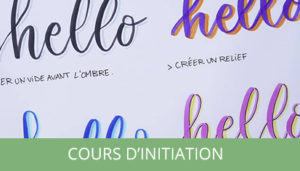 hello
hello
ER UN VIDE AVANT L'OMBRE.
> CRÉER UN RELIEF
hello
hello
COURS D'INITIATION